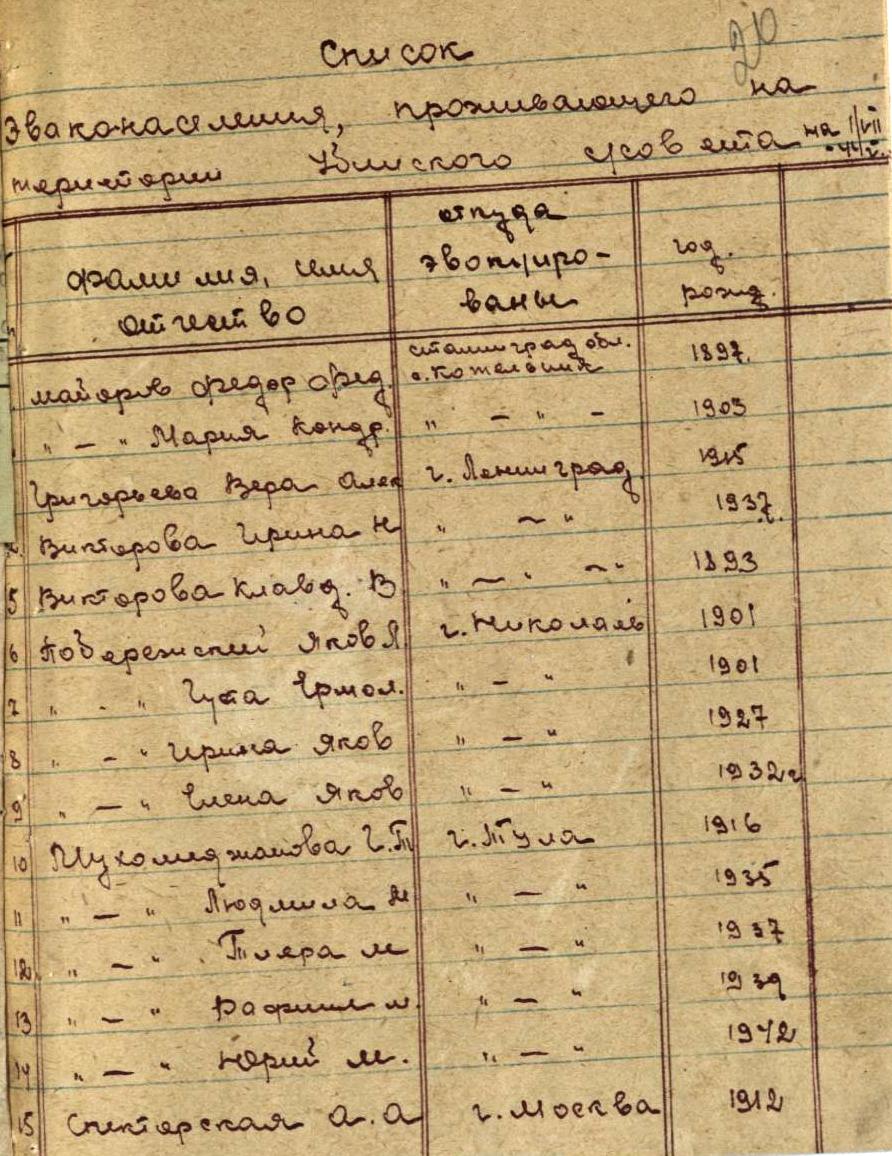 20
Список
Эваконаселения, проживающего на
территории сусовета на 1/VII
фамилия, имя отчество откуда эвокуиро- ваны год. рожд.
Майоров Федор Фед. Сталинград обл. 1897.
" — " Мария Конд. " — " — 1903
Григорьева Вера Алек г. Ленинград 1915
Викторова Ирина Н " — " 1937
5 Викторова Клавд. В " — " — " 1893
6 Побережский Яков Я. г. Николаев 1901
7 " - " Густа Ермол. " — " 1901
8 " - " Ирина Яков " — " 1927
9 " — " Елена Яков " — " 1932г
10 Мухомеджанова Г.Т г. Тула 1916
11 " — " Людмила М " — " 1935
12 " — " М " — " 1937
13 " — " м. " — " 1939
14 " — " Юрий М. " — " 1942
15 Спекторская А.А г. Москва 1912